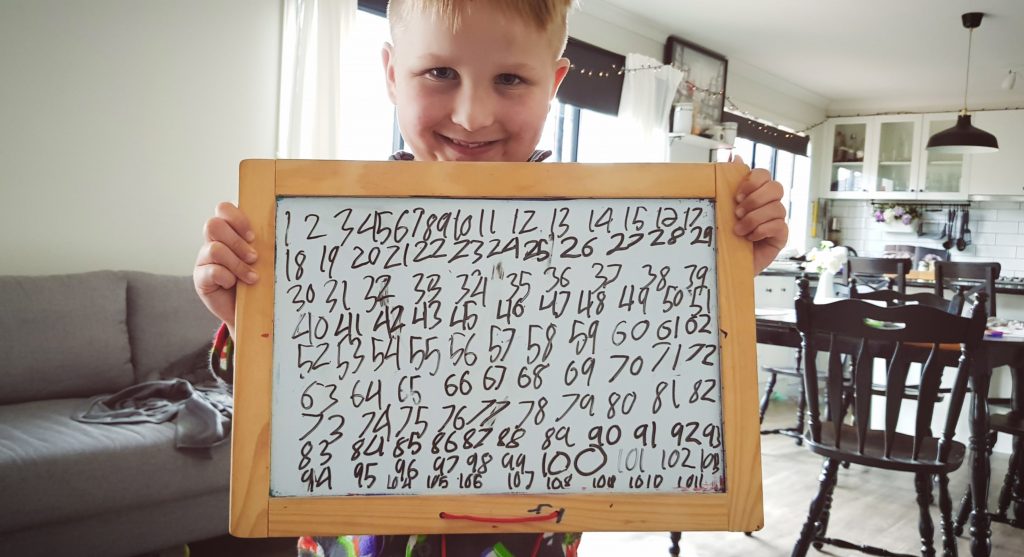 1 2 3 4 5 6 7 8 9 10 11 12 13 14 15 12 12
18 19 20 21 22 23 24 25 26 27 28 29
30 31 32 33 34 35 36 37 38 39
40 41 42 43 45 46 47 48 49 50 51
52 53 54 55 56 57 58 59 60 61 62
63 64 65 66 67 68 69 70 71 72
73 74 75 76 77 78 79 80 81 82
83 84 85 86 87 88 89 90 91 92 93
94 95 96 97 98 99 100 101 102 103
105 106 107 108 109 1010 1011